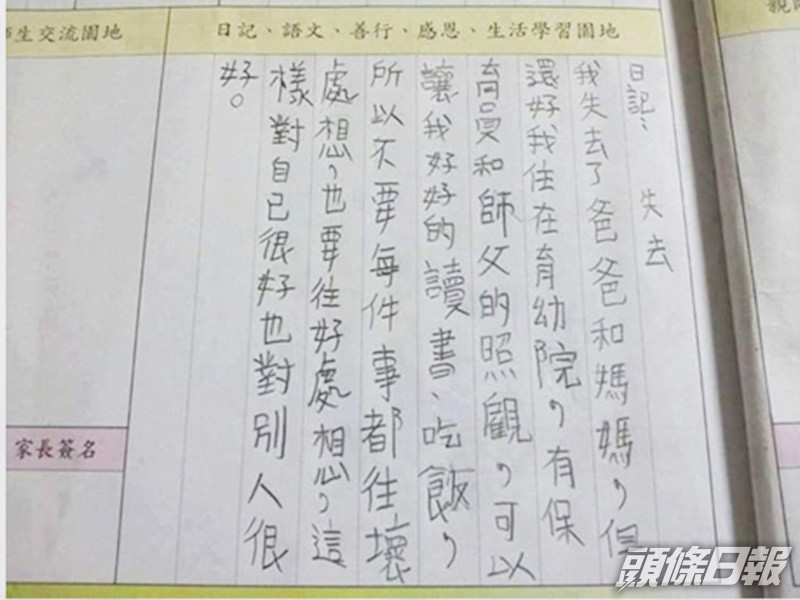 生交流園地
日記、語文、善行、感恩、生活學習園地
日記：　失去
我失去了爸爸和媽媽，但
還好我住在育幼院，有保
育員和師父的照觀，可以
讓我好好的讀書、吃飯，
所以不要每件事都往壞
處想，也要往好處想，這
樣對自已很好也對別人很
好。
家長簽名
頭條日報